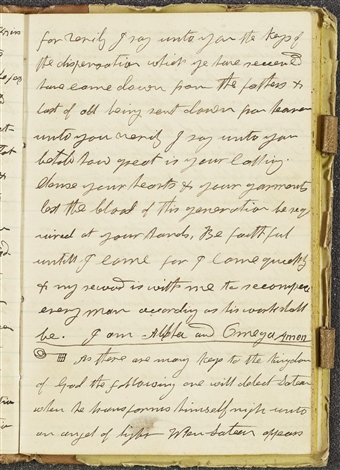 for verily I say unto you the keys of
the dispensation which ye have received
have come down from the fathers &
last of all being sent down from heaven
unto you verily I say unto you
behold how great is your calling.
Clense your hearts & your garments
lest the blood of this generation be req
uired at your hands, Be faithful
untill I come for I come quickly
& my reward is with me to recompence
every man according as his work shall
be. I am Alpha and Omega Amen
As there are many keys to the kingdom
of God the following one will detect Satan
when he transforms himself nigh unto
an angel of light. When Satan appears